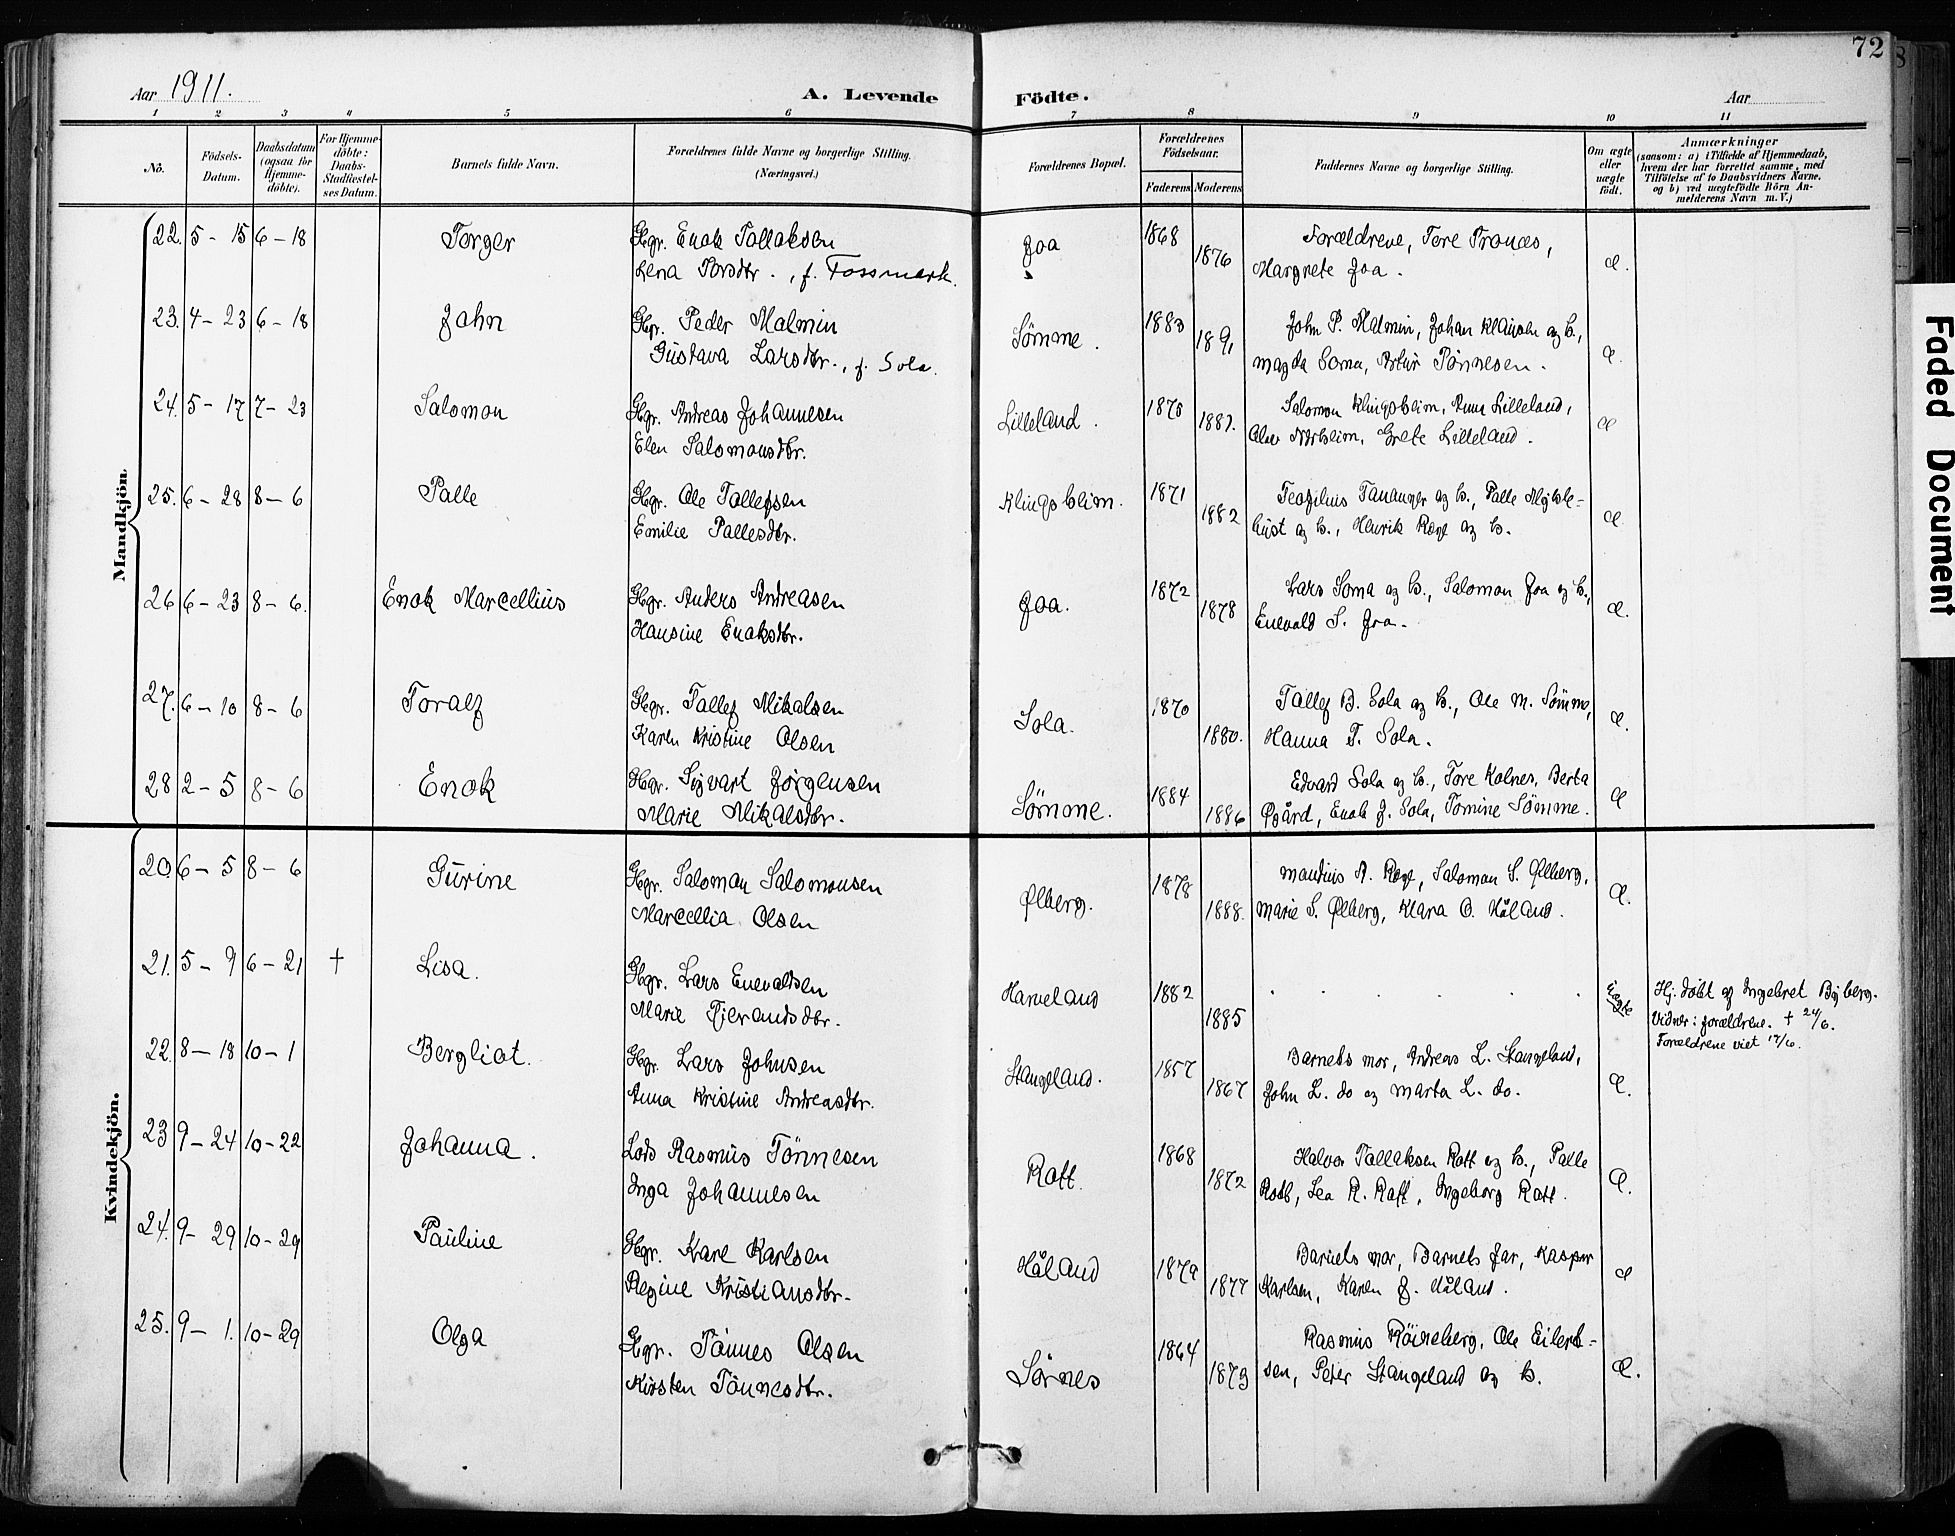 72
Aar 1911.
A. Levende Födte.
Aar
1 2 3 4 5 6 7 8 9 10 11
No.
Födsels-Datum.
Daabsdatum (ogsaa for Hjemme-döbte).
For Hjemme-döbte: Daabs-Stadfæstel-ses Datum.
Barnets fulde Navn.
Forældrenes fulde Navne og borgerlige Stilling.
(Næringsvei.)
Forældrenes Bopæl.
Forældrenes Födselsaar.
Faderens Moderens
Faddernes Navne og borgerlige Stilling.
Om ægte eller uægte födt.
Anmærkninger
(saasom: a) i Tilfælde af Hjemmedaab,
hvem der har forrettet samme, med
Tilföielse af to Daabsvidners Navne.
og b) ved uægtefödte Börn An-
melderens Navn m. V.)
Mandkjön.
22. 5 - 15 6 - 18 Torger Gbr. Enok Tollaksen Joa 1868 Forældrene, Tore Tranæs,
Lena Tordbr., f. Fossmark. 1876 Margrete Joa. Æ.
23. 4 - 23 6 - 18 John Gbr. Peder Malmin Sømme. 1883 John P. Malmin, Johan Klausen og h.,
Gustava Larsdbr., f. Sola. 1891 Magda Soma, Artur Tønnesen. Æ.
24. 5 - 17 7 - 23 Salomon Gbr. Andreas Johannesen Lilleland. 1870 Salomon Klingsheim, Anna Lilleland,
Elen Salomonsdbr. 1887. Grete Lilleland. Æ
25. 6 - 28 8 - 6 Palle Gbr. Ole Tollefsen Klingsheim. 1871 Teofilus Tananger og h., Palle Mykle-
Emilie Pallesdbr. 1882 bust og h., Henrik Røge og h. Æ.
26 6 - 23 8 - 6. Enok Marcellius Gbr. Anders Andreasen Joa. 1872 Lars Soma og h., Salomon Joa og h.,
Hansine Enoksdbr. 1878 Enevald S. Joa. Æ.
27. 6 - 10 8 - 6 Toralf Gbr. Tollef Mikalsen Sola. 1870 Tollef B. Sola og h., Ole M. Sømme,
Karen Kristine Olsen 1880. Hanna T. Sola. Æ.
28 2 - 5 8 - 6 Enok Gbr. Sigvart Jørgensen Sømme. 1884 Edvard Sola og h., Tore Kolnes, Berta
Marie Mikalsdbr. 1886 Øgård, Enok J. Sola, Tomine Sømme. Æ
Kvindekjön.
20. 6 - 5 8 - 6 Gurine Gbr. Salomon Salomonsen Ølberg. 1878 Mandius A. Røge, Salomon S. Ølberg,
Marcellia Olsen 1888. Marie S. Ølberg, Klara O. Håland. Æ.
21. 5 - 9 6 - 21 † Lisa. Gbr. Lars Enevaldsen Harveland 1882 Uægte Hj. døbt af Ingebret Byberg.
Marie Tjerandsdbr. 1885 Vidner: forældrene. † 24/6.
Forældrene viet 17/6.
22. 8 - 18 10 - 1 Bergliot. Gbr. Lars Johnsen Stangeland. 1857 Barnets mor, Andreas L. Stangeland,
Anna Kristine Andreasdbr. 1867 John L. do og Marta L. do. Æ.
23 9 - 24 10 - 22 Johanna. Lods Rasmus Tönnesen Rott. 1868 Halvor Tollaksen Rott og h., Palle
Inga Johannesen 1872 Rott, Lea R. Rott, Ingeborg Rott. Æ.
24. 9 - 29 10 - 29 Pauline Gbr. Karl Karlsen Håland 1879 Barnets mor, Barnets far, Kasper
Regine Kristiansdbr. 1877 Karlsen, Karen J. Håland. Æ
25. 9 - 1. 10 - 29 Olga Gbr. Tönnes Olsen Sørnes 1864 Rasmus Röineberg, Ole Eilert-
Kirsten Tönnesdbr. 1873 sen, Peter Stangeland og h. Æ.
Faded Document